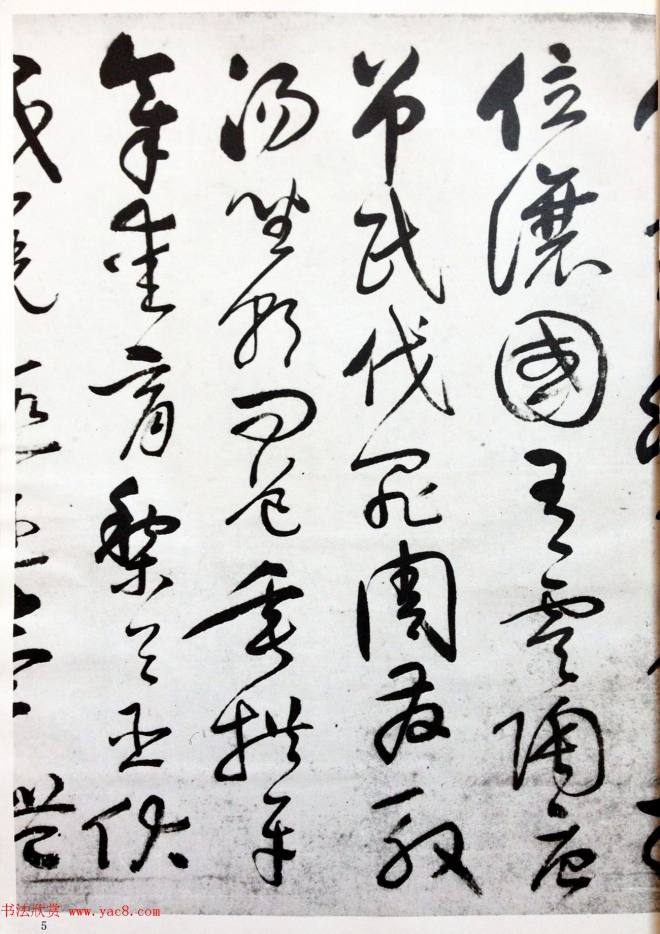 位讓國有虞陶唐
弔民伐罪周發殷
湯坐朝問道垂拱平
章愛育黎首臣伏
书法欣赏 www.yac8.com
5